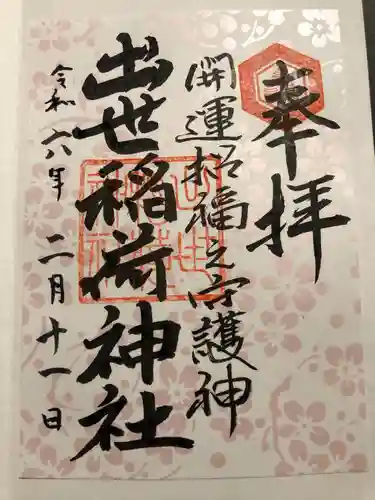 奉拝
開運招福之守護神
出世稲荷神社
令和六年 二月十一日